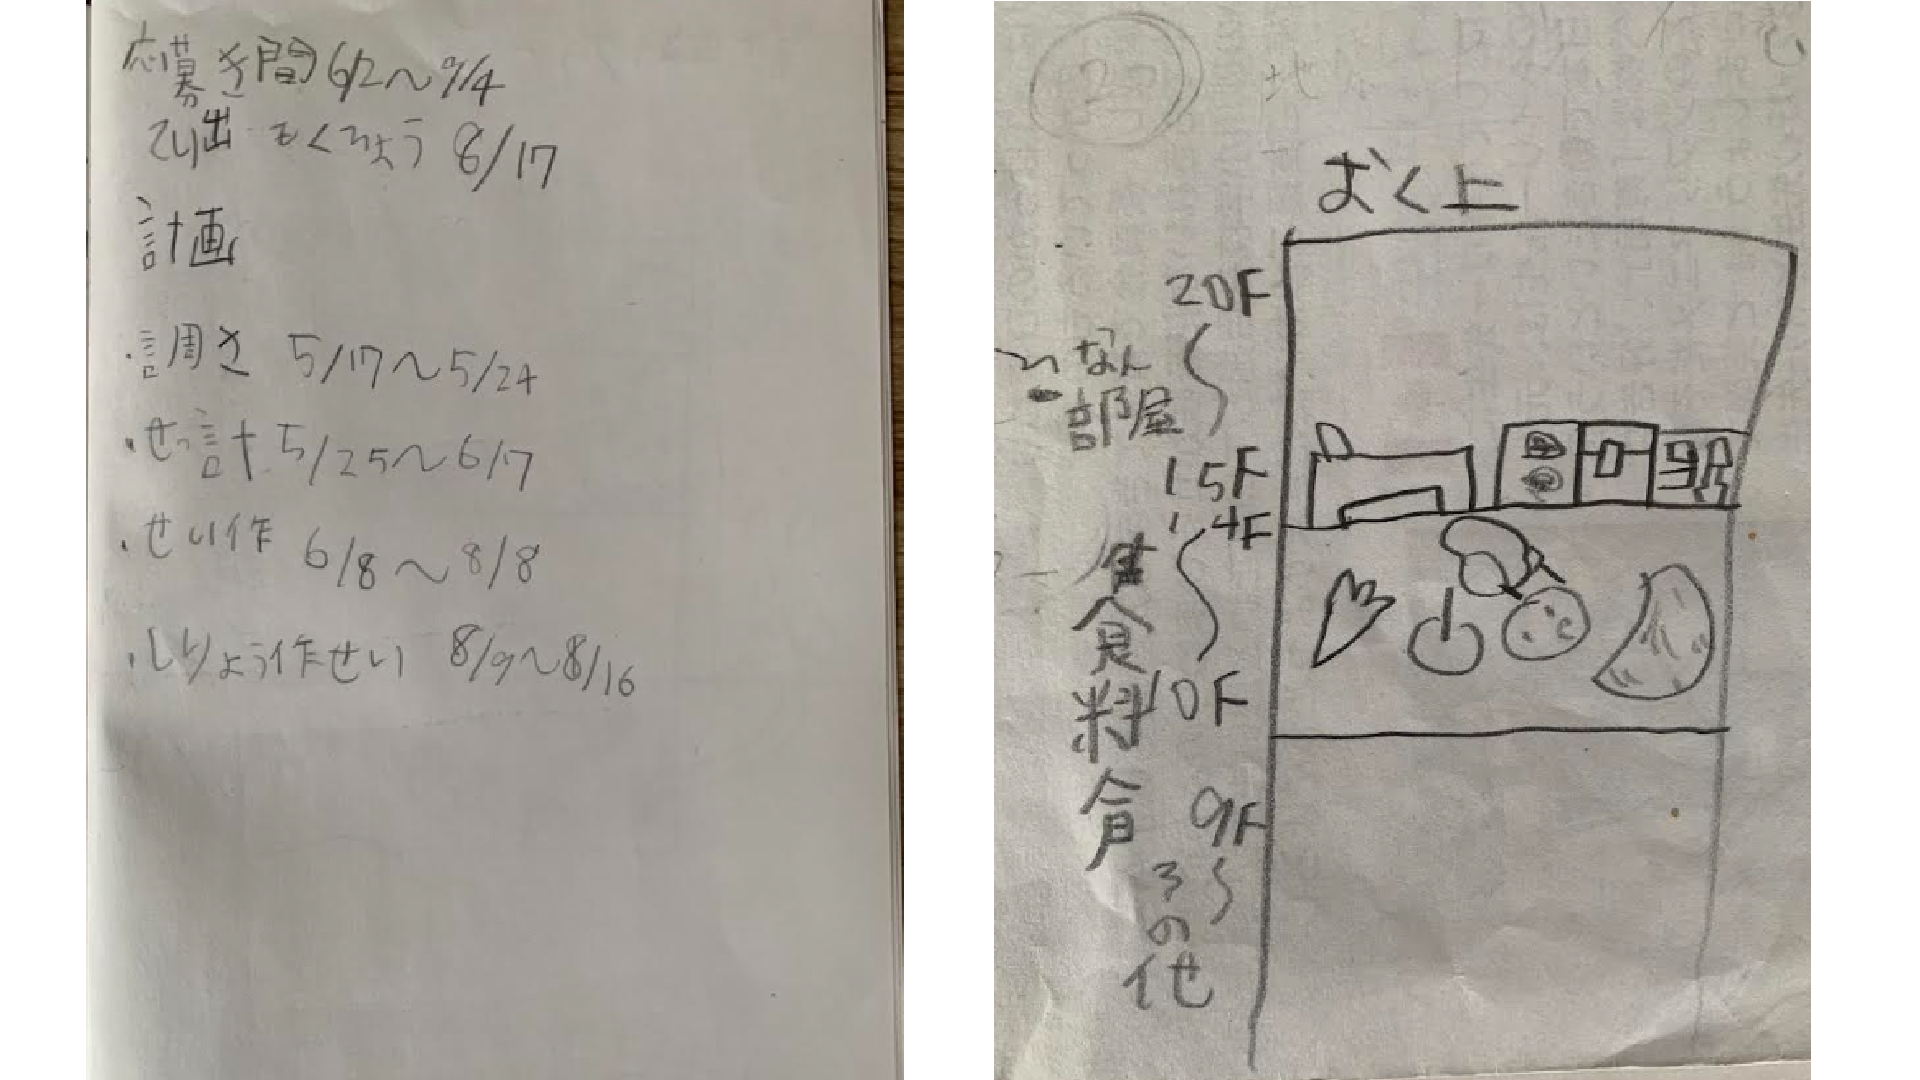 応募き間 6/2〜9/4
てい出もくひょう 8/17
計画
・調さ 5/17〜5/24
・せっ計 5/25〜6/7
・せい作 6/8〜8/8
・しりょう作せい 8/9〜8/16
おく上
20F
〜
15F
ひなん
部屋
14F
〜
10F
食料倉庫
9F
〜
その他